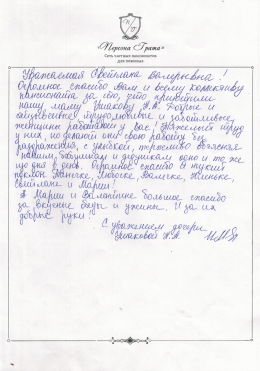 «Персона Грата»
Сеть частных пансионатов
для пожилых
Уважаемая Светлана Валерьевна!
Огромное спасибо Вам и всему коллективу
пансионата за то, что приютили
нашу маму Ушакову Н.А. Добрые и
трудолюбивые и заботливые
женщины работают у вас! Тяжелый труд
у них, но делают они свою работу без
раздражения, с улыбкой, терпеливо объясняя
нашим бабушкам и дедушкам одно и то же
изо дня в день. Огромное спасибо и низкий
поклон Танечке, Любочке, Валечке, Леночке,
Светлане и Марии!
А Марии и Валентине большое спасибо
за вкусные обеды и ужины. И за их
добрые руки.
С уважением дочери
Ушаковой Н.А.